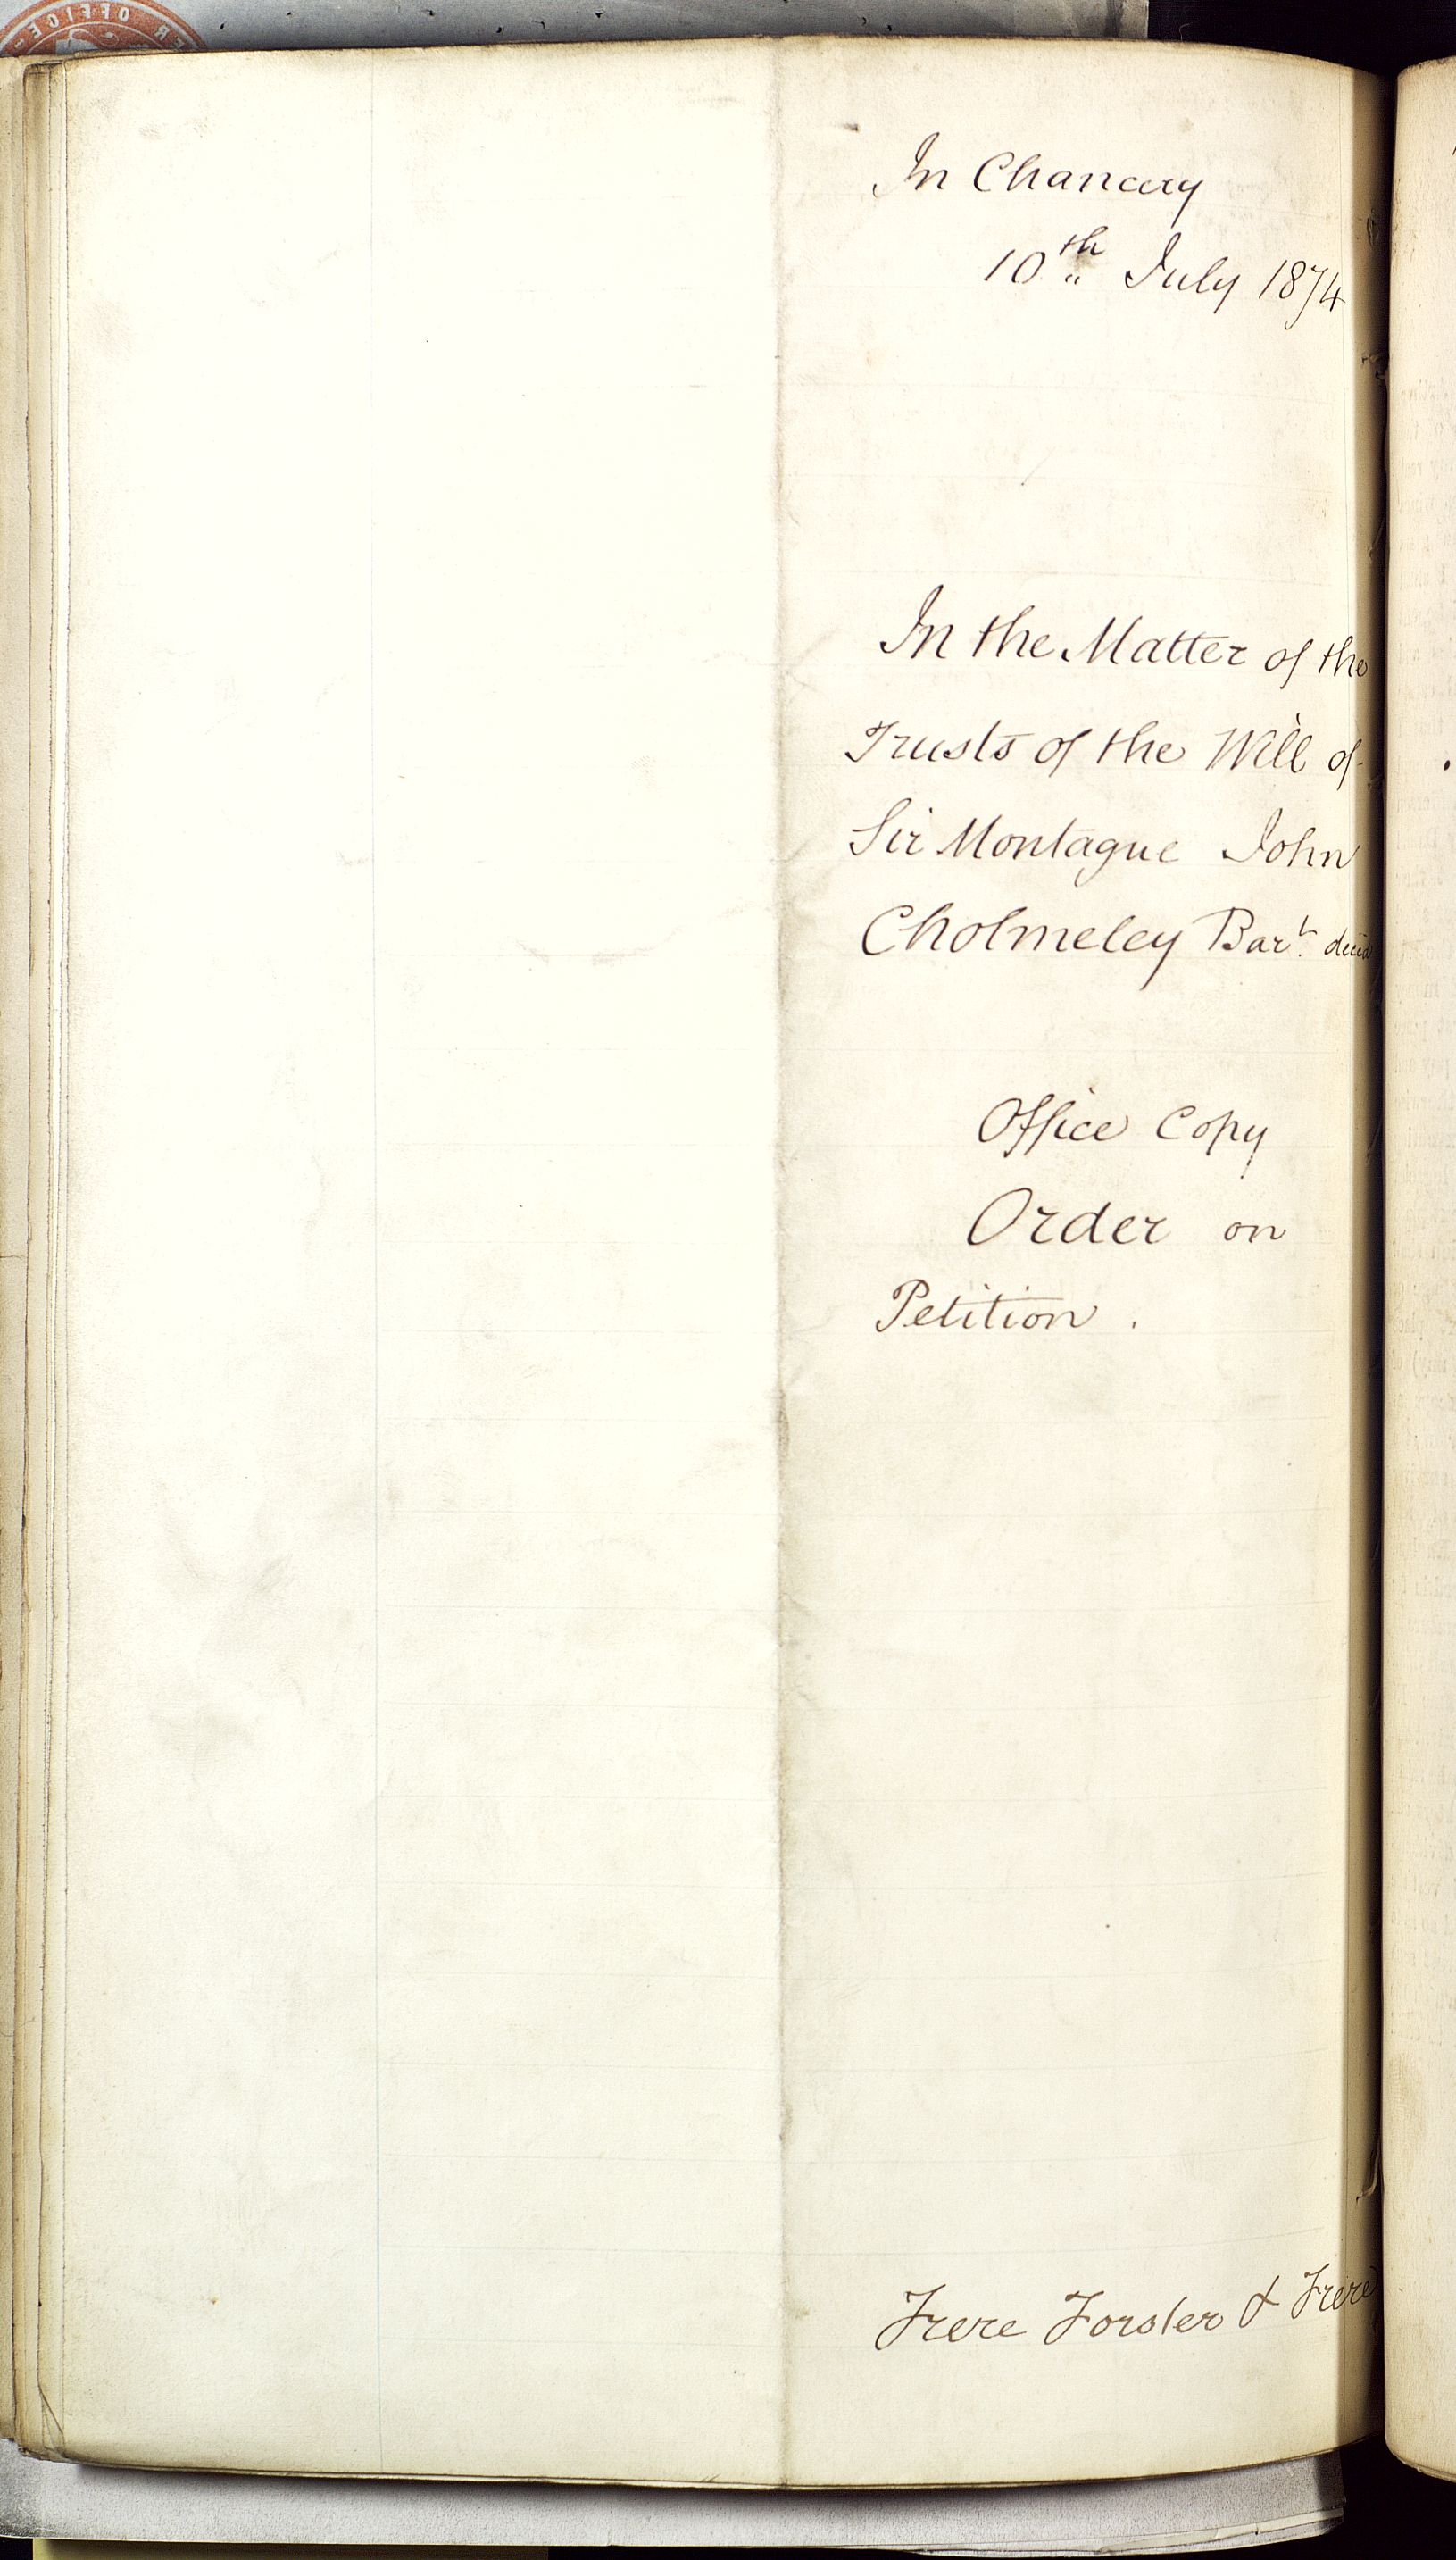 In Chancery
10th July 1874
In the Matter of the
Trusts of the Will of
Sir Montague John
Cholmeley Bart. decd
Office Copy
Order on
Petition.
Frere Forster & Frere